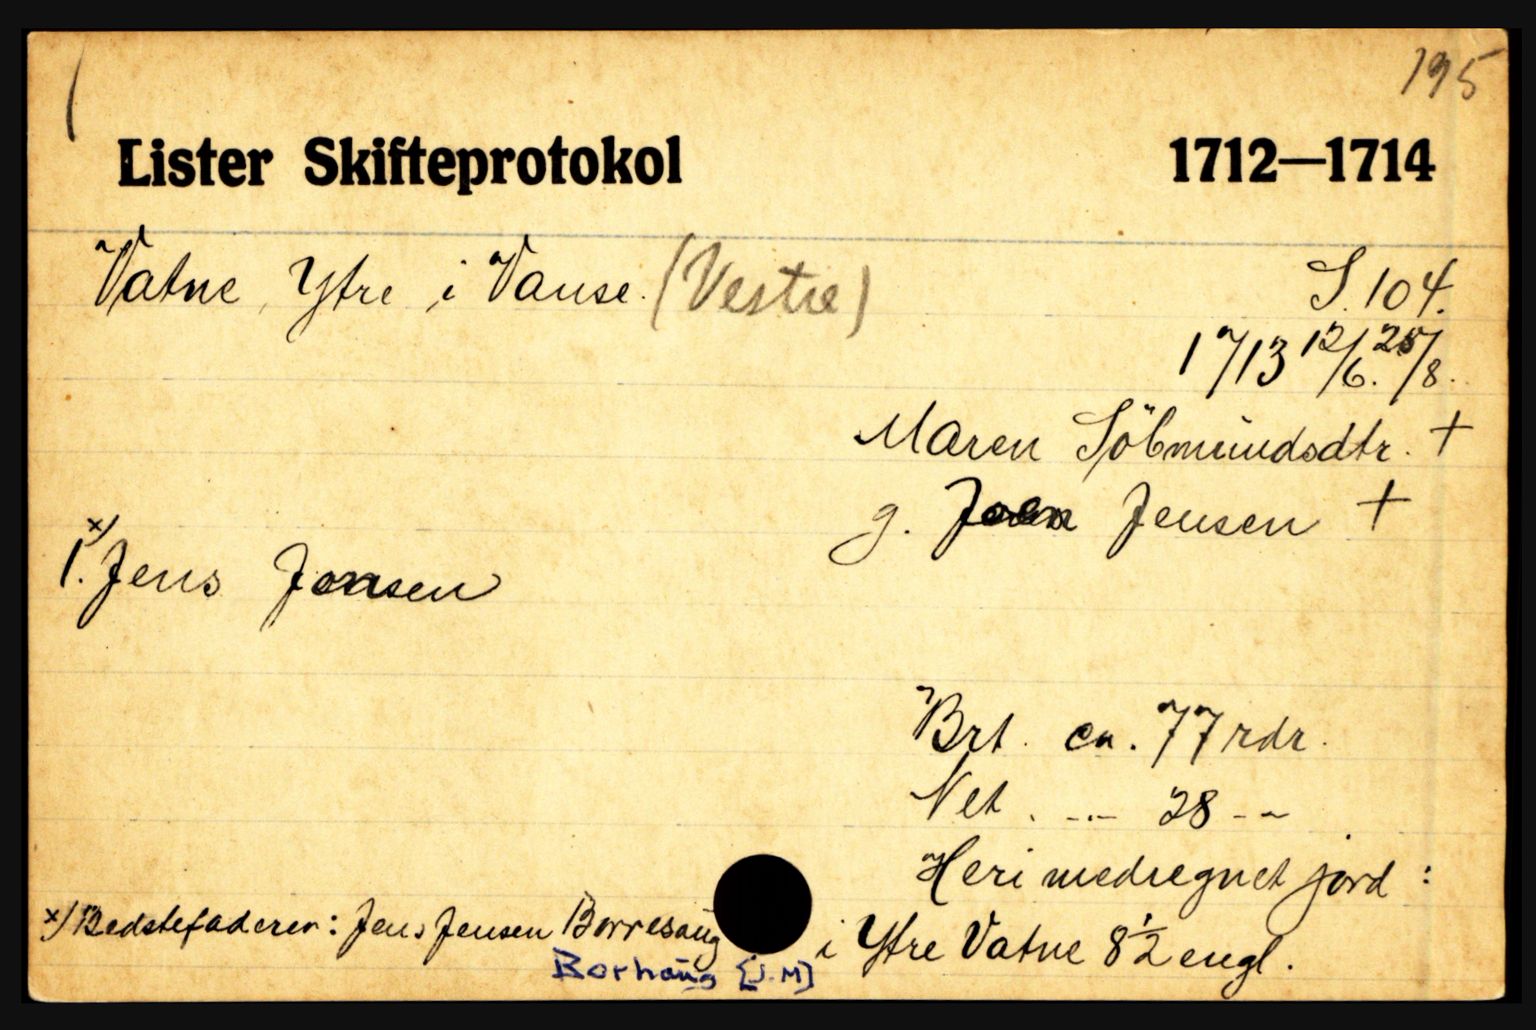 195
Lister Skifteprotokol 1712—1714
Vatne, Ytre i Vanse. (Vestre)
S. 104.
1713 12/6. 25/8.
Maren Söbmundsdtr. +
g. Jens Jensen +
x)
1. Jens Jensen
Brt. ca. 77 rdr.
Net. -.- 28 - -
Heri medregnet jord:
i Ytre Vatne 8 1/2 engl.
x) Bedstefaderen: Jens Jensen Borresaug
Borhaug [J.M]